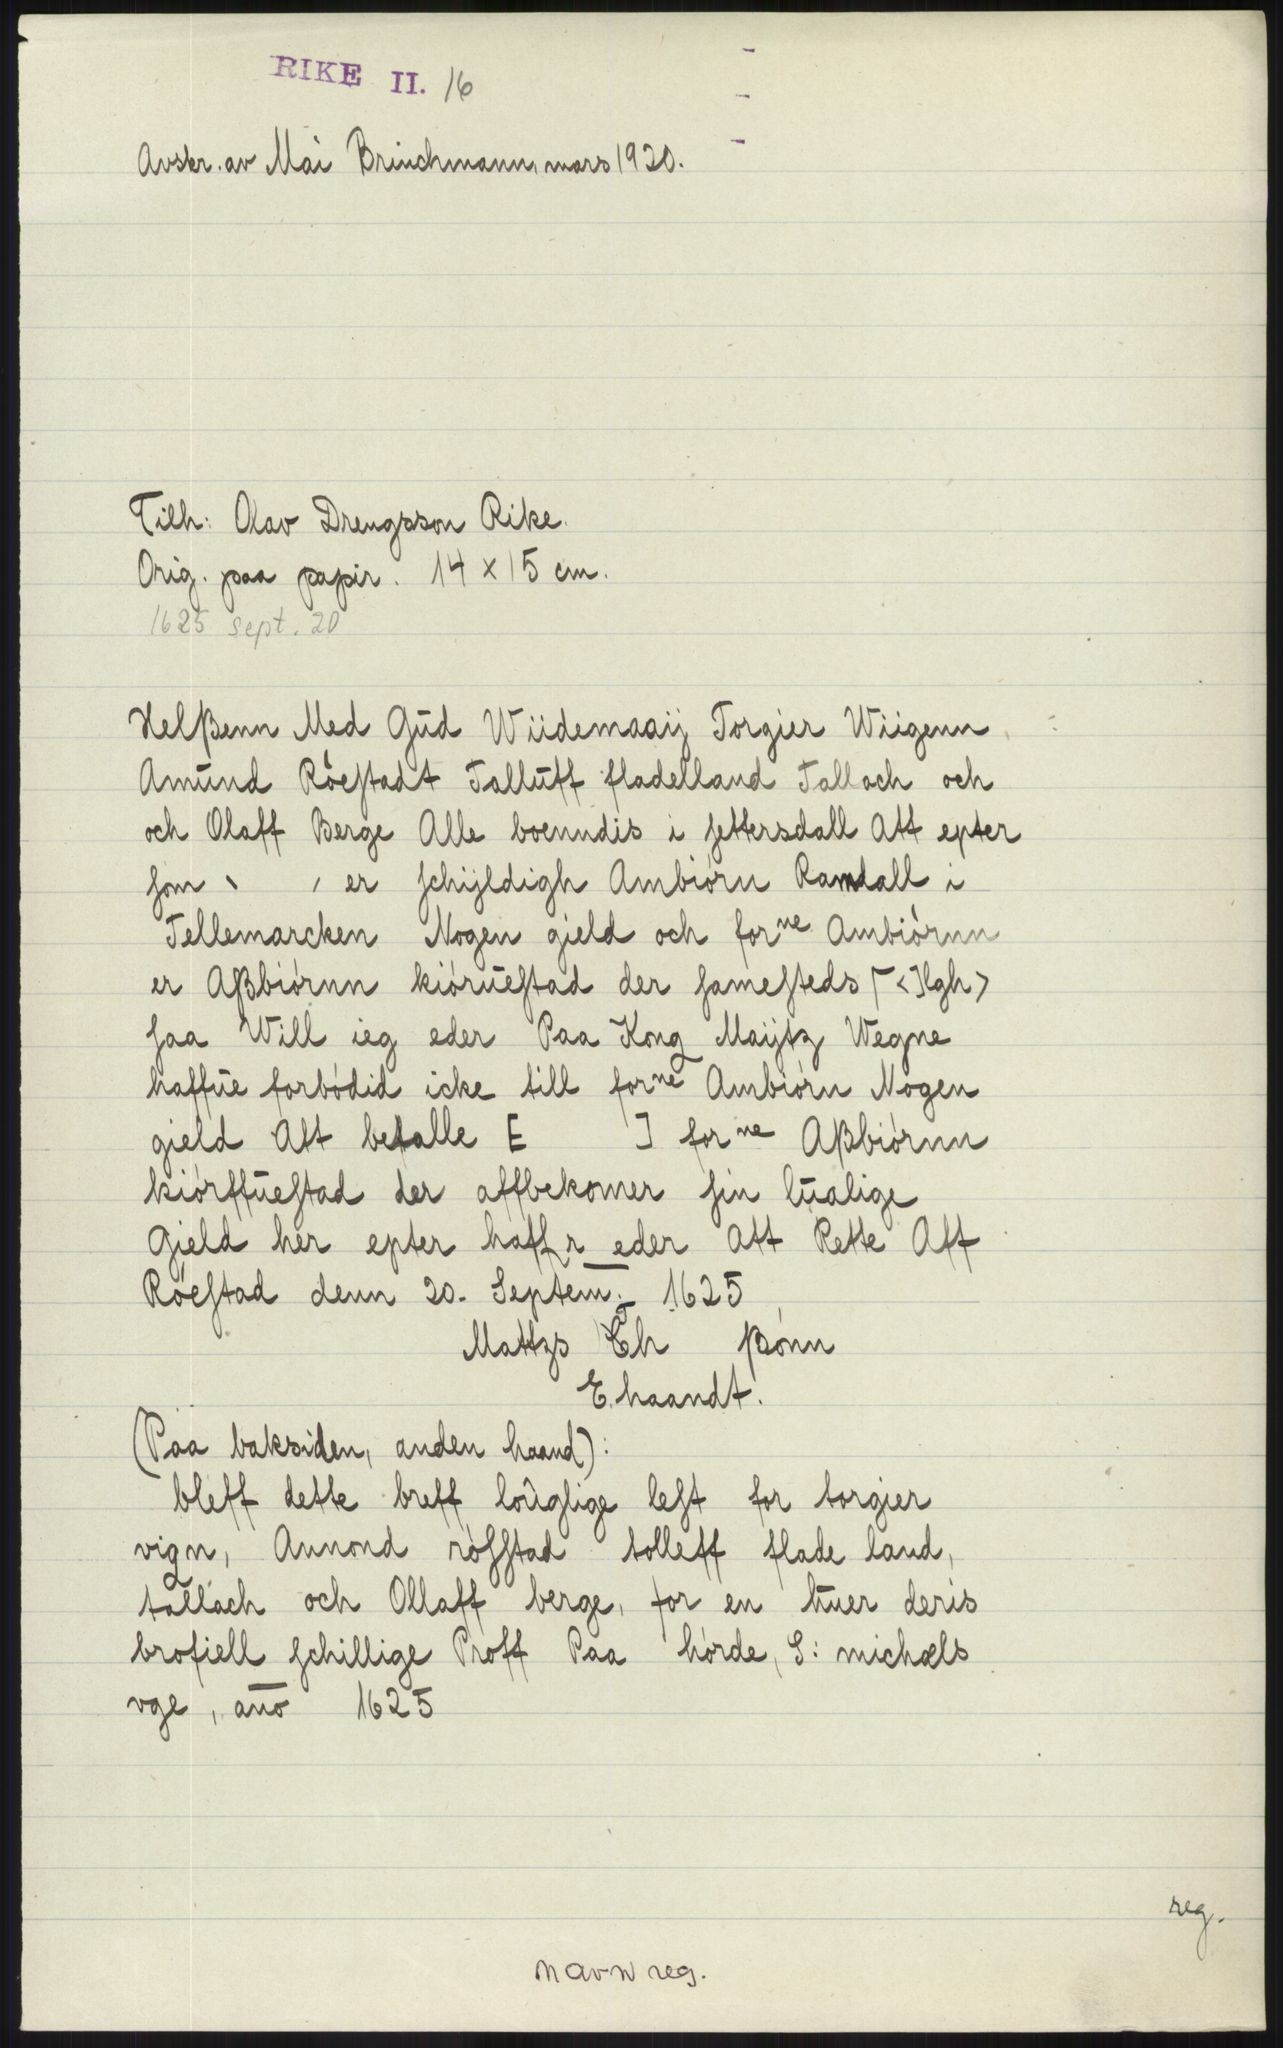 RIKE II. 16
Avskr. av Mai Brinchmann, mars 1920.
Tilh: Olav Drengsson Rike.
Orig. paa papir. 14 x 15 cm.
1625 sept. 20
Helßenn Med Gud Wiidemaaij Torgier Wiigenn
Amund Röestadt Talluff fladelland Tallach och
och Olaff Berge Alle boenndis i settersdall Att epter
som er schijldigh Ambiörn Ramdall i
Tellemarcken Nogen gield och forne Ambiörnn
er Aßbiörnn kiörüestad der samesteds [<]lgh>
saa Will ieg eder Paa Kong Maijtz Wegne
haffue forbödid icke till forne Ambiörn Nogen
gield Att betalle [ ] forne Aßbiörnn
kiörffüestad der affbekomer sin lualige
Gield her epter haffr eder Att Rette Aff
Röestad denn 20. Septem: 1625
Mattzs Ch ßönn
E. haandt.
(Paa baksiden, anden haand):
bleff dette breff loüglige lest for torgier
vign, Amond rösstad tolleff flade land,
tallach och Ollaff berge, for en huer deris
brofiell schillige Proff Paa hörde, S: michaels
vge, ano 1625
reg.
navn reg.